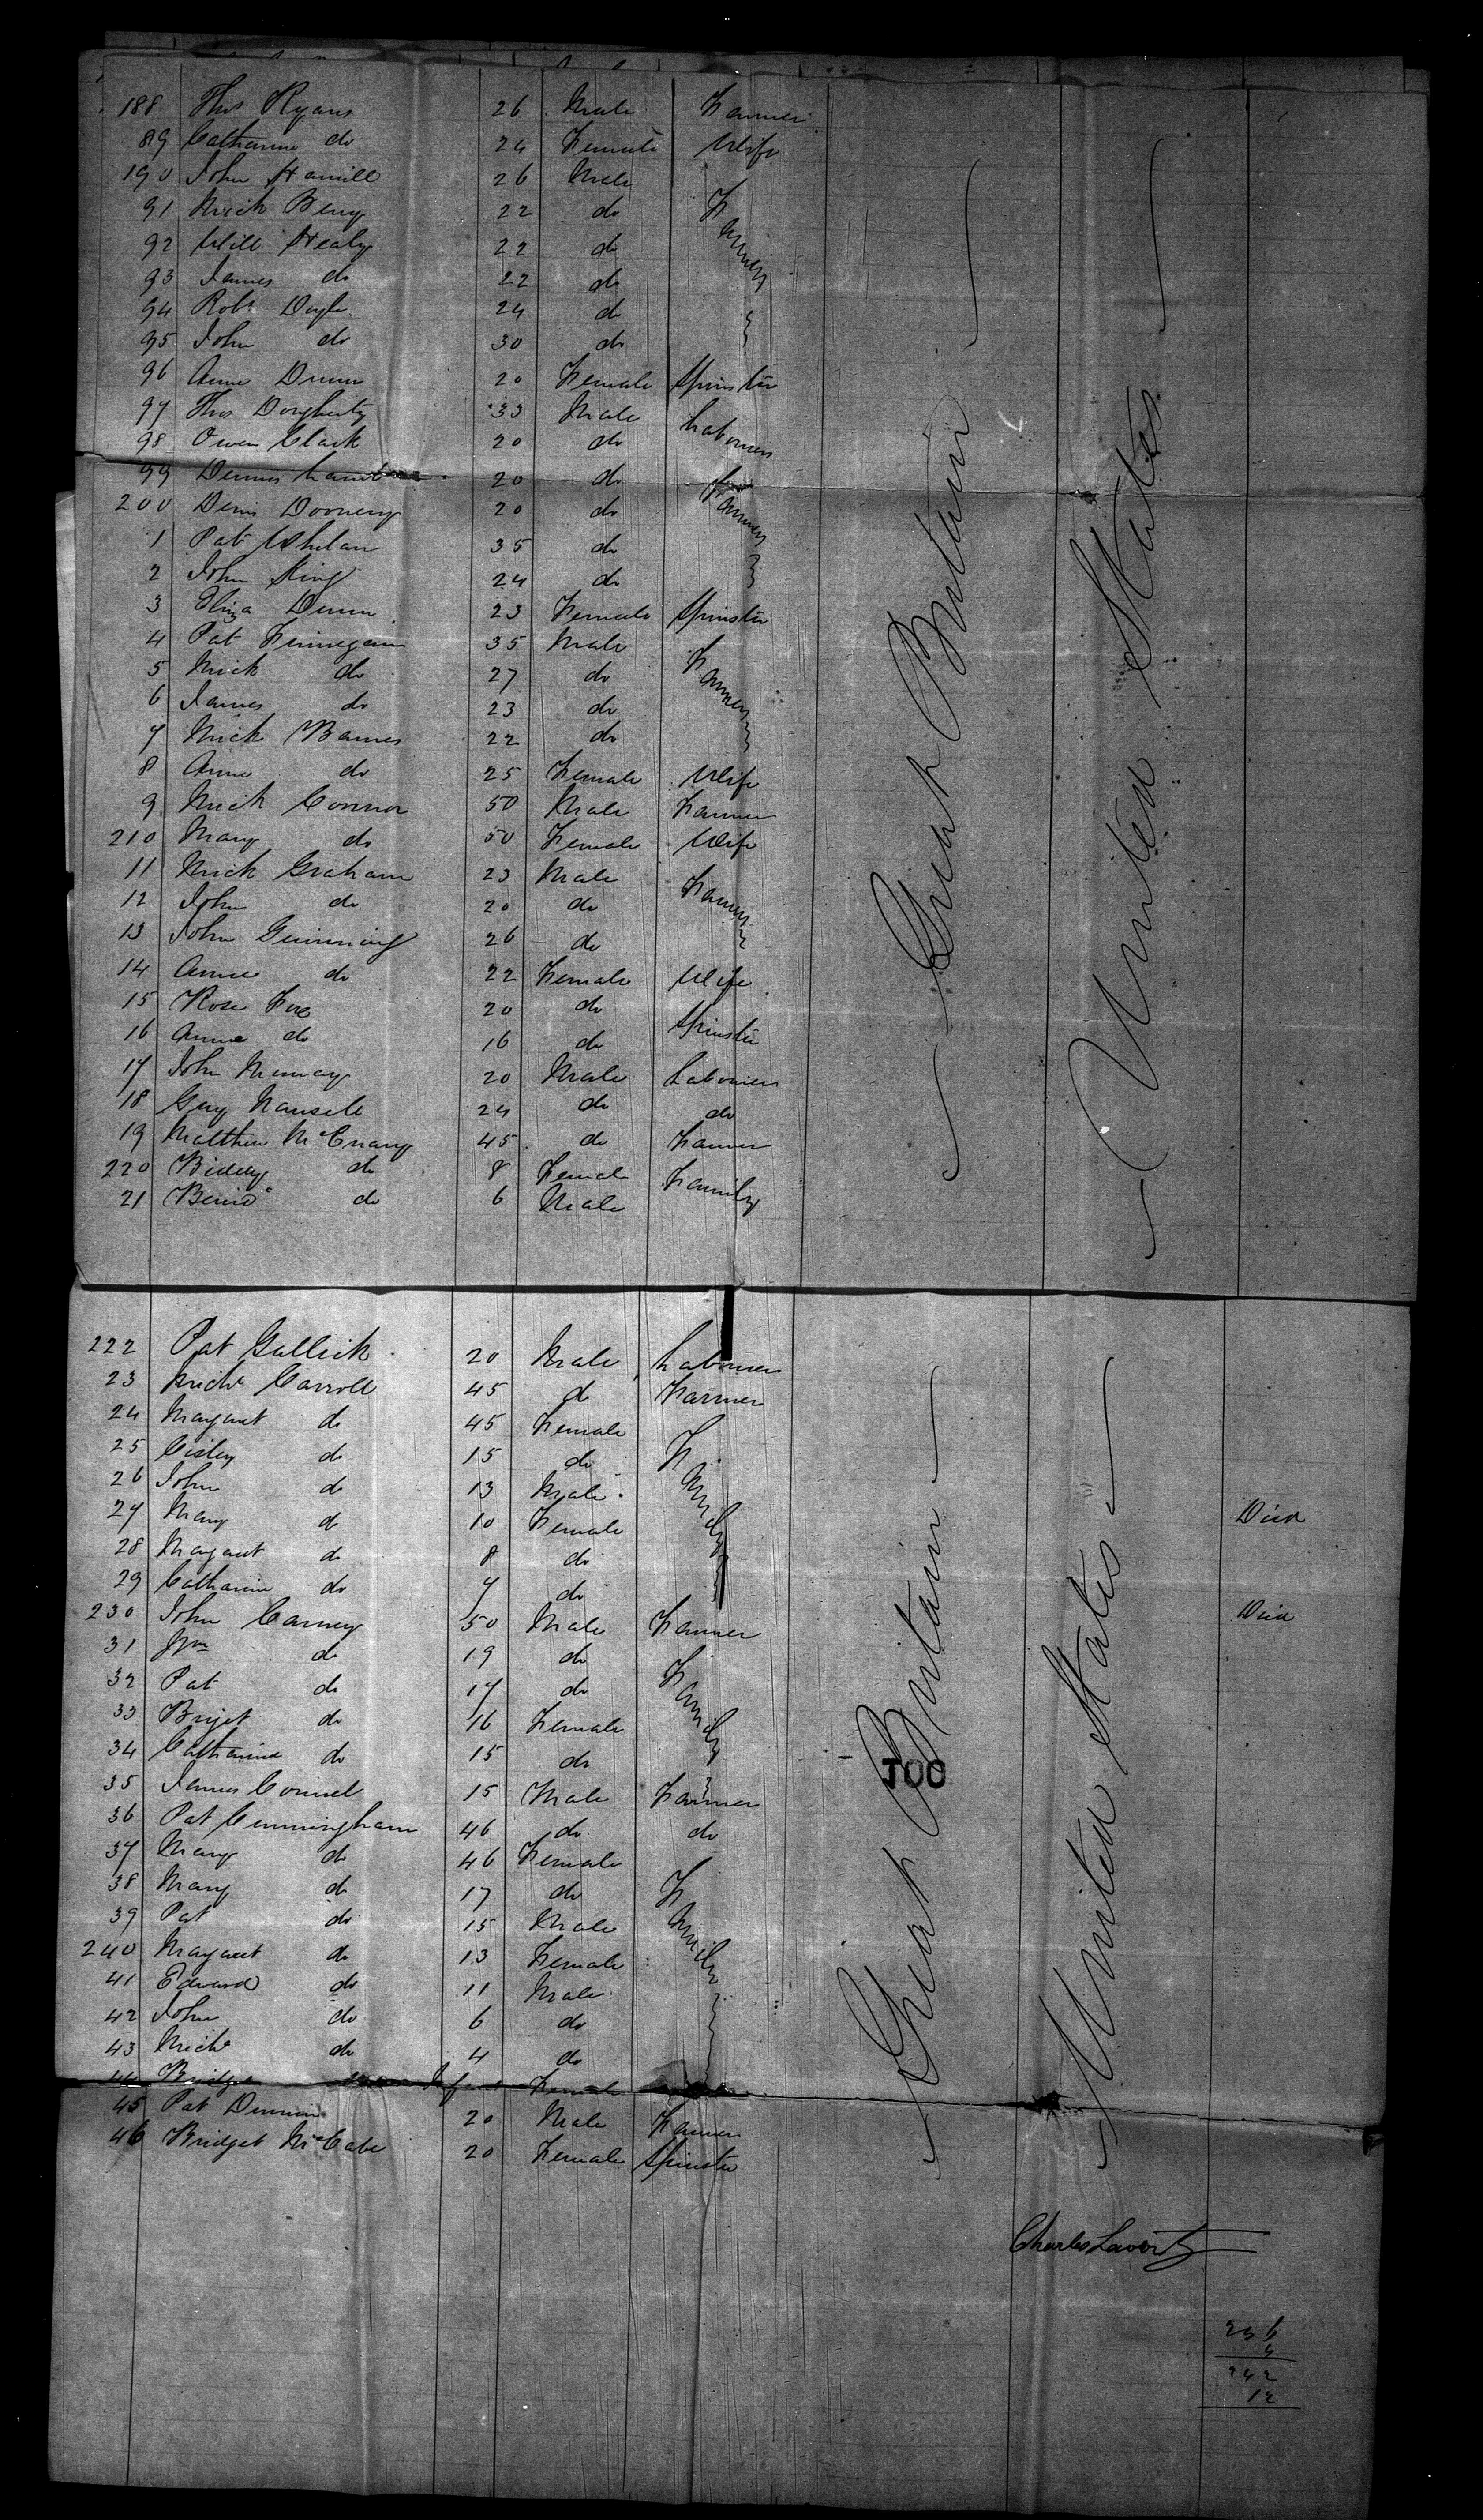 188 Thos Ryans 26 Male Farmer
89 Catharine do 24 Female Wife
190 John Hamill 26 Male
91 Mick Berry 22 do Farmers
92 Will Healy 22 do
93 James do 22 do
94 Robt Doyle 24 do
95 John do 30 do
96 Anne Dunn 20 Female Spinster
97 Thos Dougherty 33 Male Labourers
98 Owen Clark 20 do
99 Dennis Lamb 20 do
200 Denis Dooneny 20 do Farmers
1 Pat Whelan 35 do
2 John King 24 do
3 Eliza Dunn 23 Female Spinster
4 Pat Finnegan 35 Male
5 Mick do 27 do Farmers
6 James do 23 do
7 Mick Barnes 22 do
8 Anne do 25 Female Wife
9 Mick Connor 50 Male Farmer
210 Mary do 50 Female Wife
11 Mick Graham 23 Male Farmers
12 John do 20 do
13 John Gunning 26 do
14 Anne do 22 Female Wife
15 Rose Fox 20 do
16 Anne do 16 do Spinster
17 John Murray 20 Male Labourer
18 24 do do
19 Matthew McEnary 45 do Farmer
220 Biddy do 8 Female Family
21 do 6 Male
Great Britain
United States
222 Pat Gallick 20 Male Labourer
23 Michl Carroll 45 do Farmer
24 Margaret do 45 Female
25 Cisley do 15 do Family
26 John do 13 Male
27 Mary do 10 Female Died
28 Margaret do 8 do
29 Catharine do 7 do
230 John Carney 50 Male Farmer Died
31 Wm do 19 do
32 Pat do 17 do Family
33 Brijet do 16 Female
34 Catharine do 15 do
35 James Connel 15 Male Farmer
36 Pat Cunningham 46 do do
37 Mary do 46 Female
38 Mary do 17 do Family
39 Pat do 15 Male
240 Margaret do 13 Female
41 Edward do 11 Male
42 John do 6 do
43 Michl do 4 do
44 Bridget Infant Female
45 Pat Dunn 20 Male Farmer
46 Bridget McCabe 20 Female Spinster
Great Britain
United States
TOO
Charles
246
4
242
12